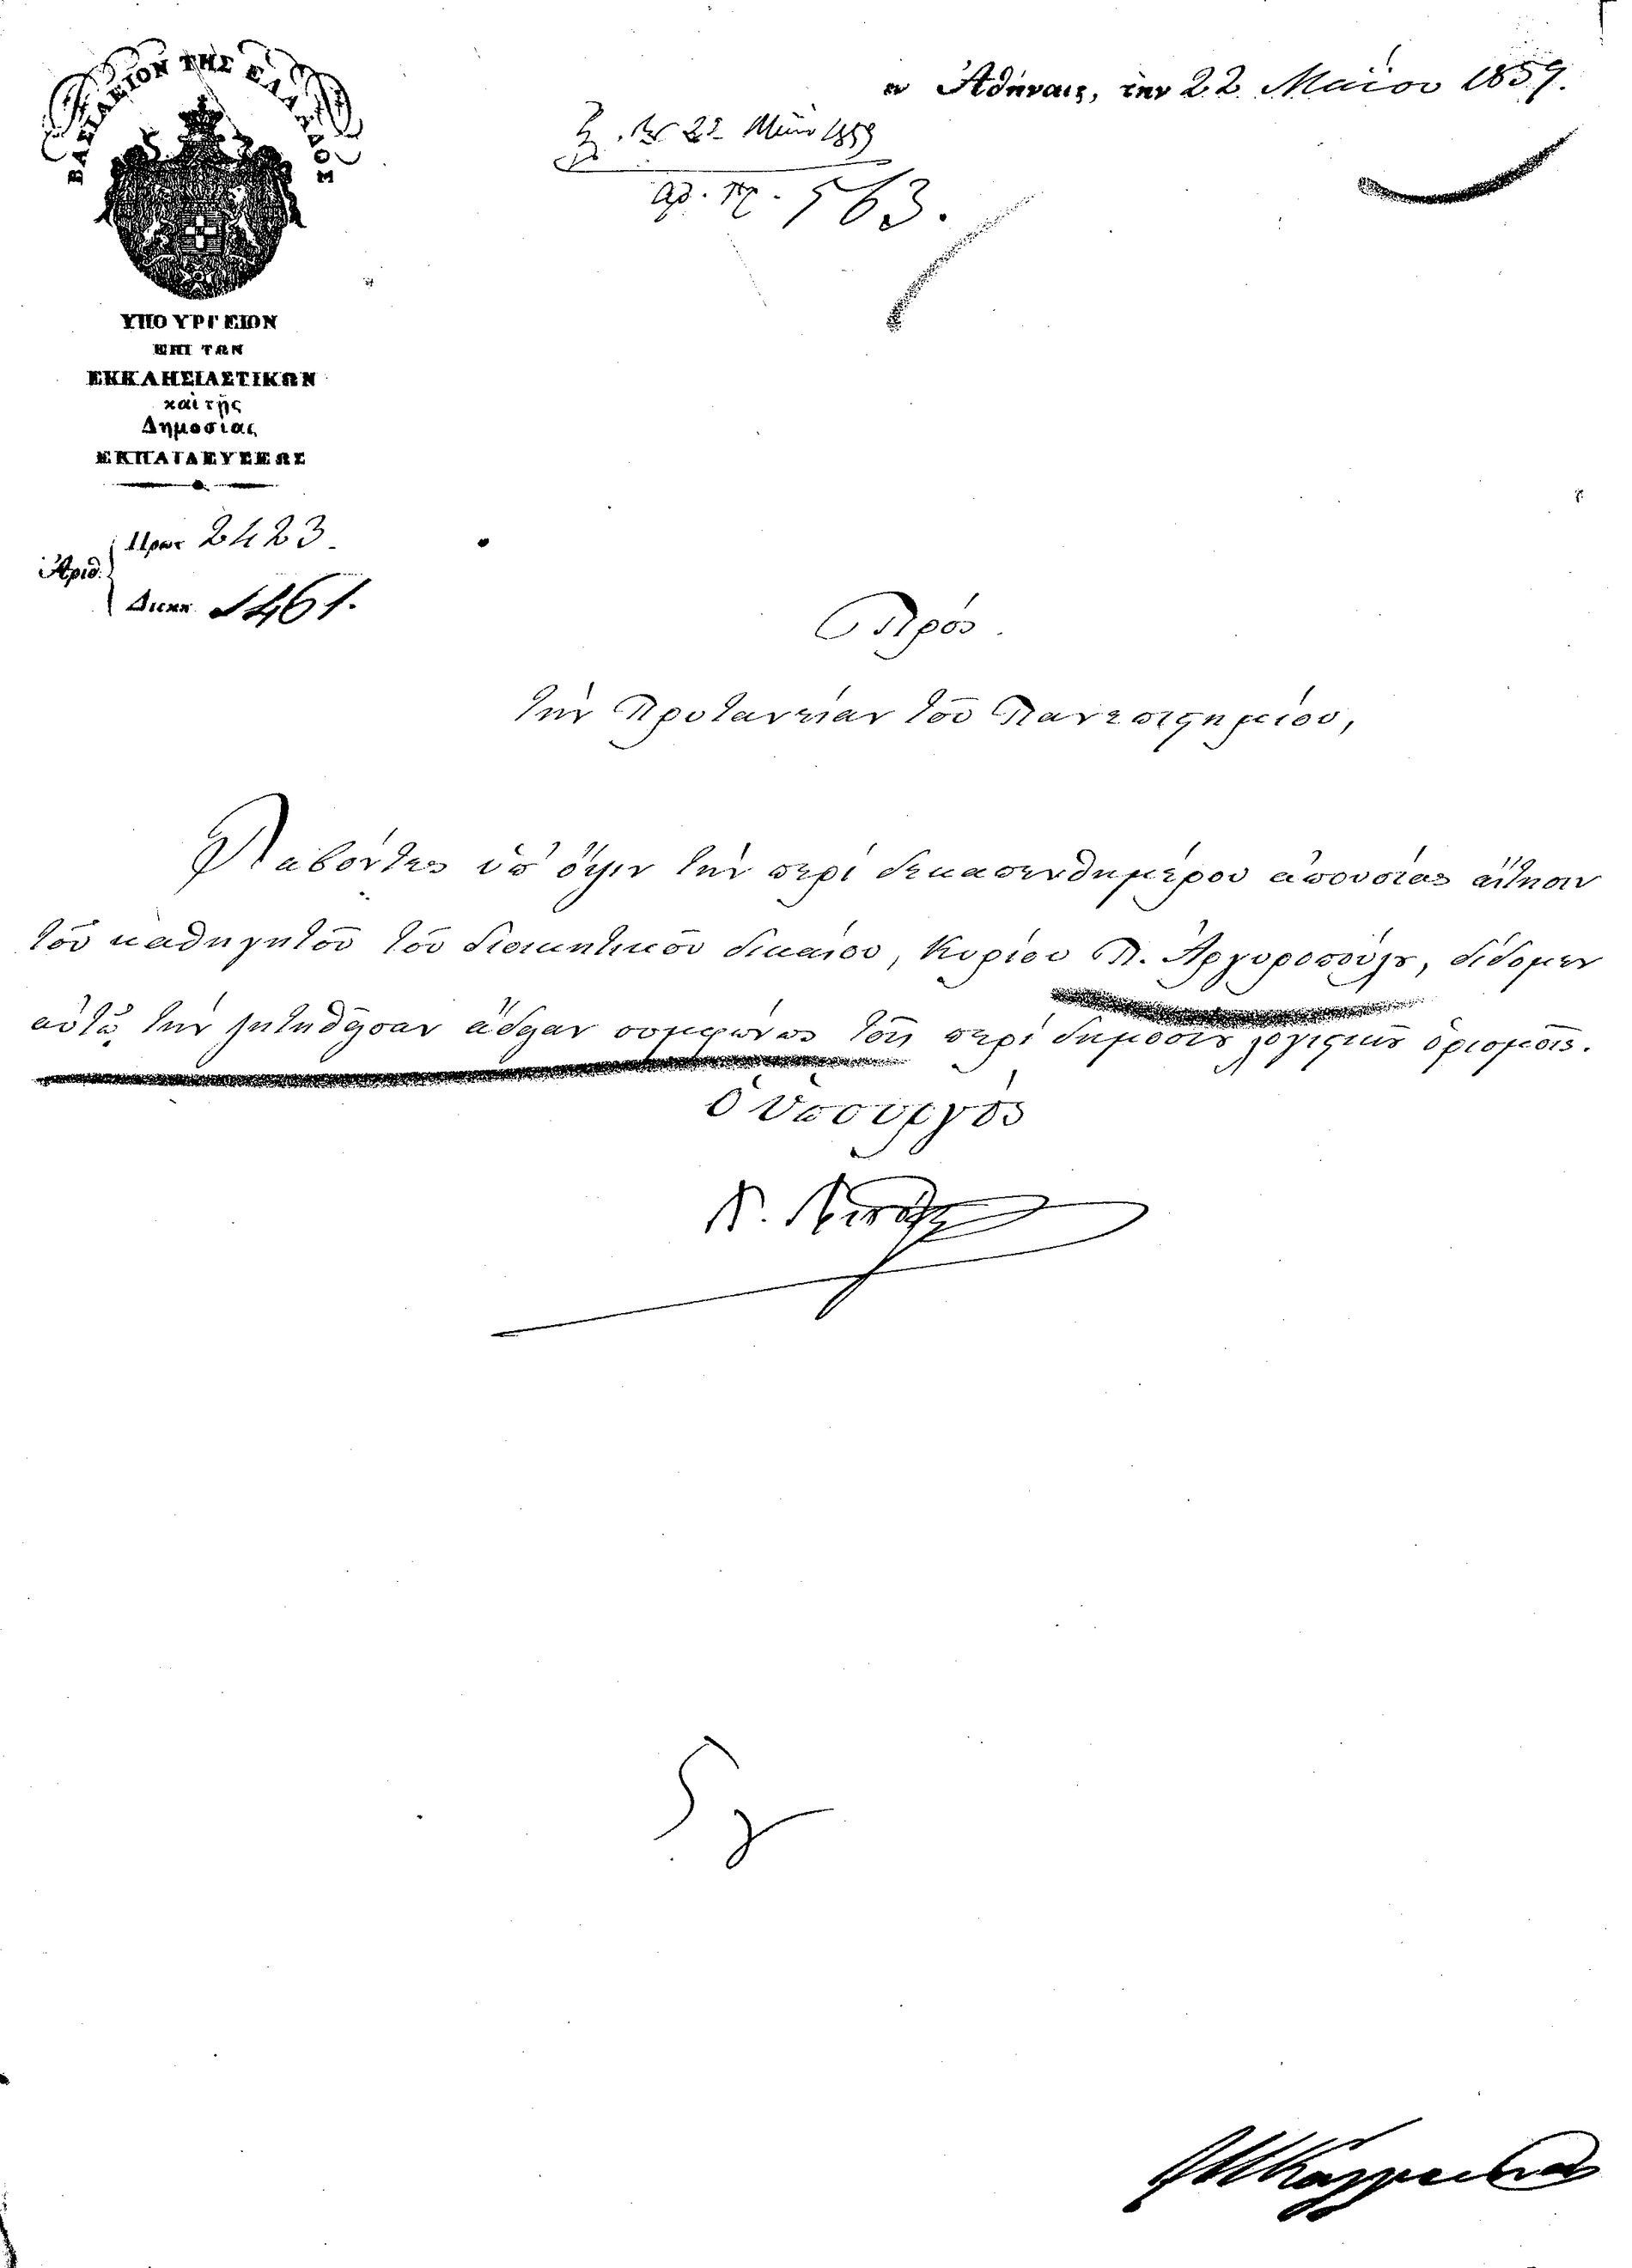 ΒΑΣΙΛΕΙΟΝ ΤΗΣ ΕΛΛΑΔΟΣ
ΥΠΟΥΡΓΕΙΟΝ
ΕΠΙ ΤΩΝ
ΕΚΚΛΗΣΙΑΣΤΙΚΩΝ
καὶ τῆς
Δημοσίας
ΕΚΠΑΙΔΕΥΣΕΩΣ
Ἀριθ. Πρωτ 2423
Διεκπ. 1461.
Ἀθήναις, τὴν 22 Μαΐου 1859.
22 Μαΐου 1859
αρ. πρ. 563.
Πρὸς
τὴν Πρυτανείαν τοῦ Πανεπιςημίου,
Λαβόντες ὑπ' ὄψιν τὴν περὶ δεκαπενθημέρου ἀπουσίας αἴτησιν
τοῦ καθηγητοῦ τοῦ διοικητικοῦ δικαίου, Κυρίου Π. Ἀργυροπούλου, δίδομεν
αὐτῷ τὴν ζητηθεῖσαν ἄδειαν συμφώνως τοῖς περὶ δημοσίου λογιςικοῦ ὁρισμοῖς.
ὁ Ὑπουργὸς